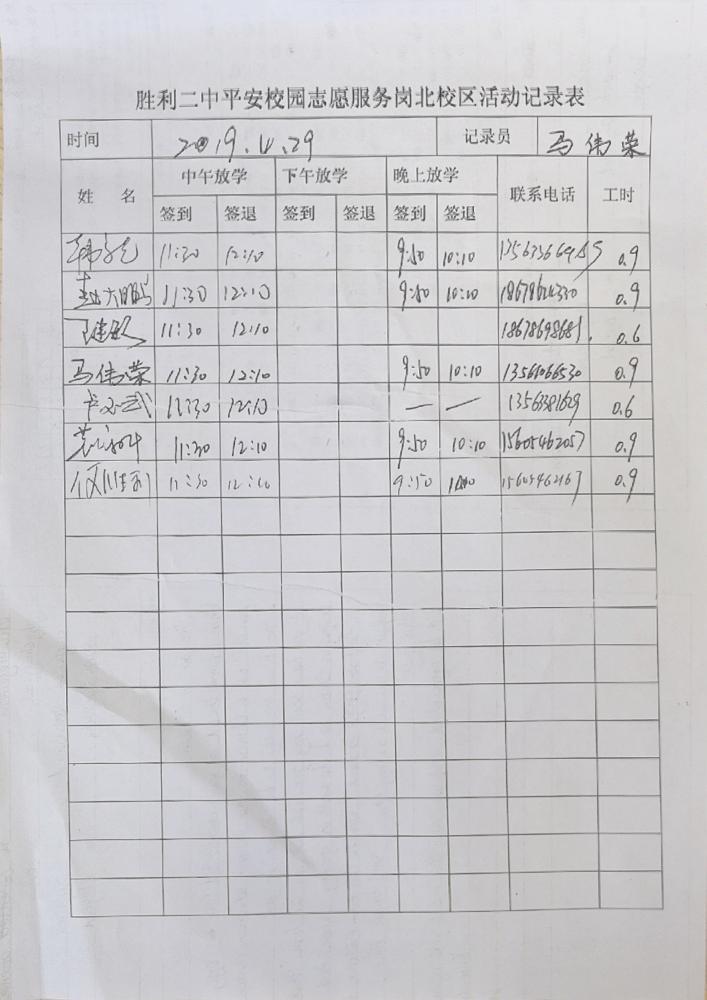 胜利二中平安校园志愿服务岗北校区活动记录表
时间 2019.4.29 记录员 马伟荣
姓 名 中午放学 下午放学 晚上放学 联系电话 工时
签到 签退 签到 签退 签到 签退
11:30 12:10 9:50 10:10 0.9
赵大鹏 11:30 12:10 9:50 10:10 0.9
11:30 12:10 18678698681. 0.6
马伟荣 11:30 12:10 9:50 10:10 13561066530 0.9
11:30 12:10 — — 0.6
11:30 12:10 9:50 10:10 15605462057 0.9
11:30 12:10 9:50 15605462167 0.9